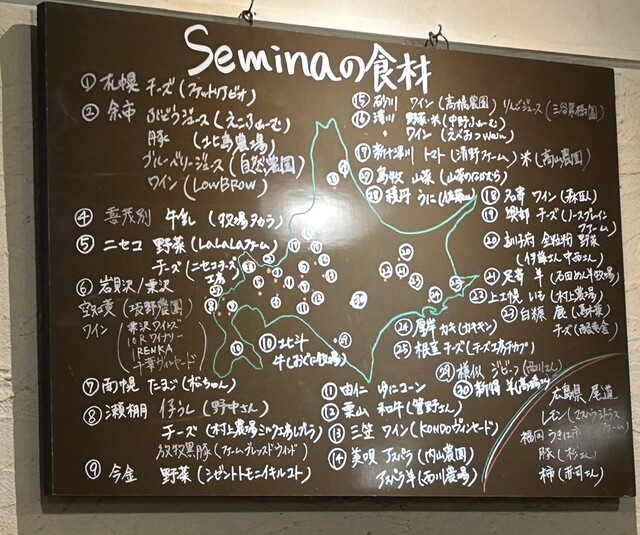 Seminaの食材
① 札幌 チーズ (ファットリアビオ)
② 余市 ぶどうジュース (えこふぁーむ)
豚 (北島農場)
ブルーベリージュース (自然農園)
ワイン (LOWBROW)
④ 喜茂別 牛乳 (牧場タカラ)
⑤ ニセコ 野菜 (LALALAファーム)
チーズ (ニセコチーズ工房)
⑥ 岩見沢/栗沢
(坂野農園)
ワイン 栗沢ワインズ
10Rワイナリー
RENKA
千華ヴィンヤード
⑦ 南幌 たまご (松ちゃん)
⑧ 瀬棚 仔うし (野中さん)
チーズ (村上農場ミルクこあしぶ)
放牧黒豚 (ファームブレッスドウインド)
⑨ 今金 野菜 (シゼントトモニイキルコト)
⑩ 北斗
牛 (おぐに牧場)
⑪ 由仁 ゆにコーン
⑫ 栗山 和牛 (菅野さん)
⑬ 三笠 ワイン (KONDOヴィンヤード)
⑭ 美唄 アスパラ (内山農園)
アスパラ羊 (西川農場)
⑮ 砂川 ワイン (高橋農園) りんごジュース
⑯ 深川 野菜・米 (中野ふぁーむ)
〃 ワイン (えべおつWein)
⑰ 新十津川 トマト (清野ファーム) 米 (高山農園)
㉗ 島牧 山菜 (山菜のなかむら)
㉘ 積丹 うに
⑱ 名寄 ワイン (森臥)
⑲ 興部 チーズ (ノースプレインファーム)
⑳ 訓子府 全粒粉 野菜
(伊藤さん 中西さん)
㉑ 足寄 羊 (石田めん羊牧場)
㉒ 上士幌 いも (村上農場)
㉓ 白糠 鹿 (馬木葉)
チーズ (酪恵舎)
㉔ 厚岸 カキ (カキキン)
㉕ 根室 チーズ (チーズ工房チカプ)
㉙ 様似 ジビーフ (西川さん)
㉚ 新得 羊
広島県 尾道
レモン
福岡 うきは市
豚 (杉さん)
柿